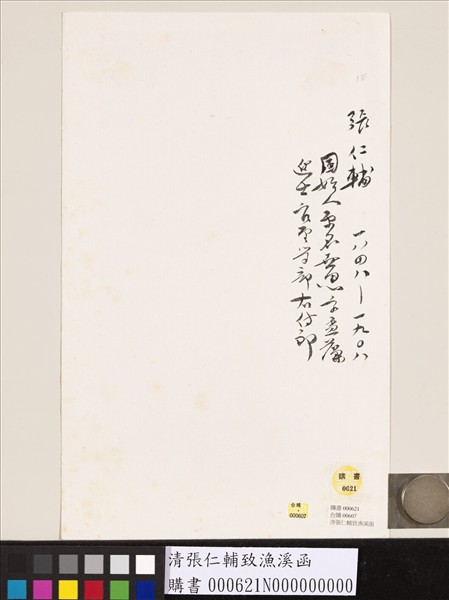 張仁輔 一八四八—一九〇八
固始人原名世恩字
進士官至學部右侍郎
購書
0621
台購
000607
購書 000621
台購 00607
清張仁輔致漁溪函
清張仁輔致漁溪函
購書 000621N000000000